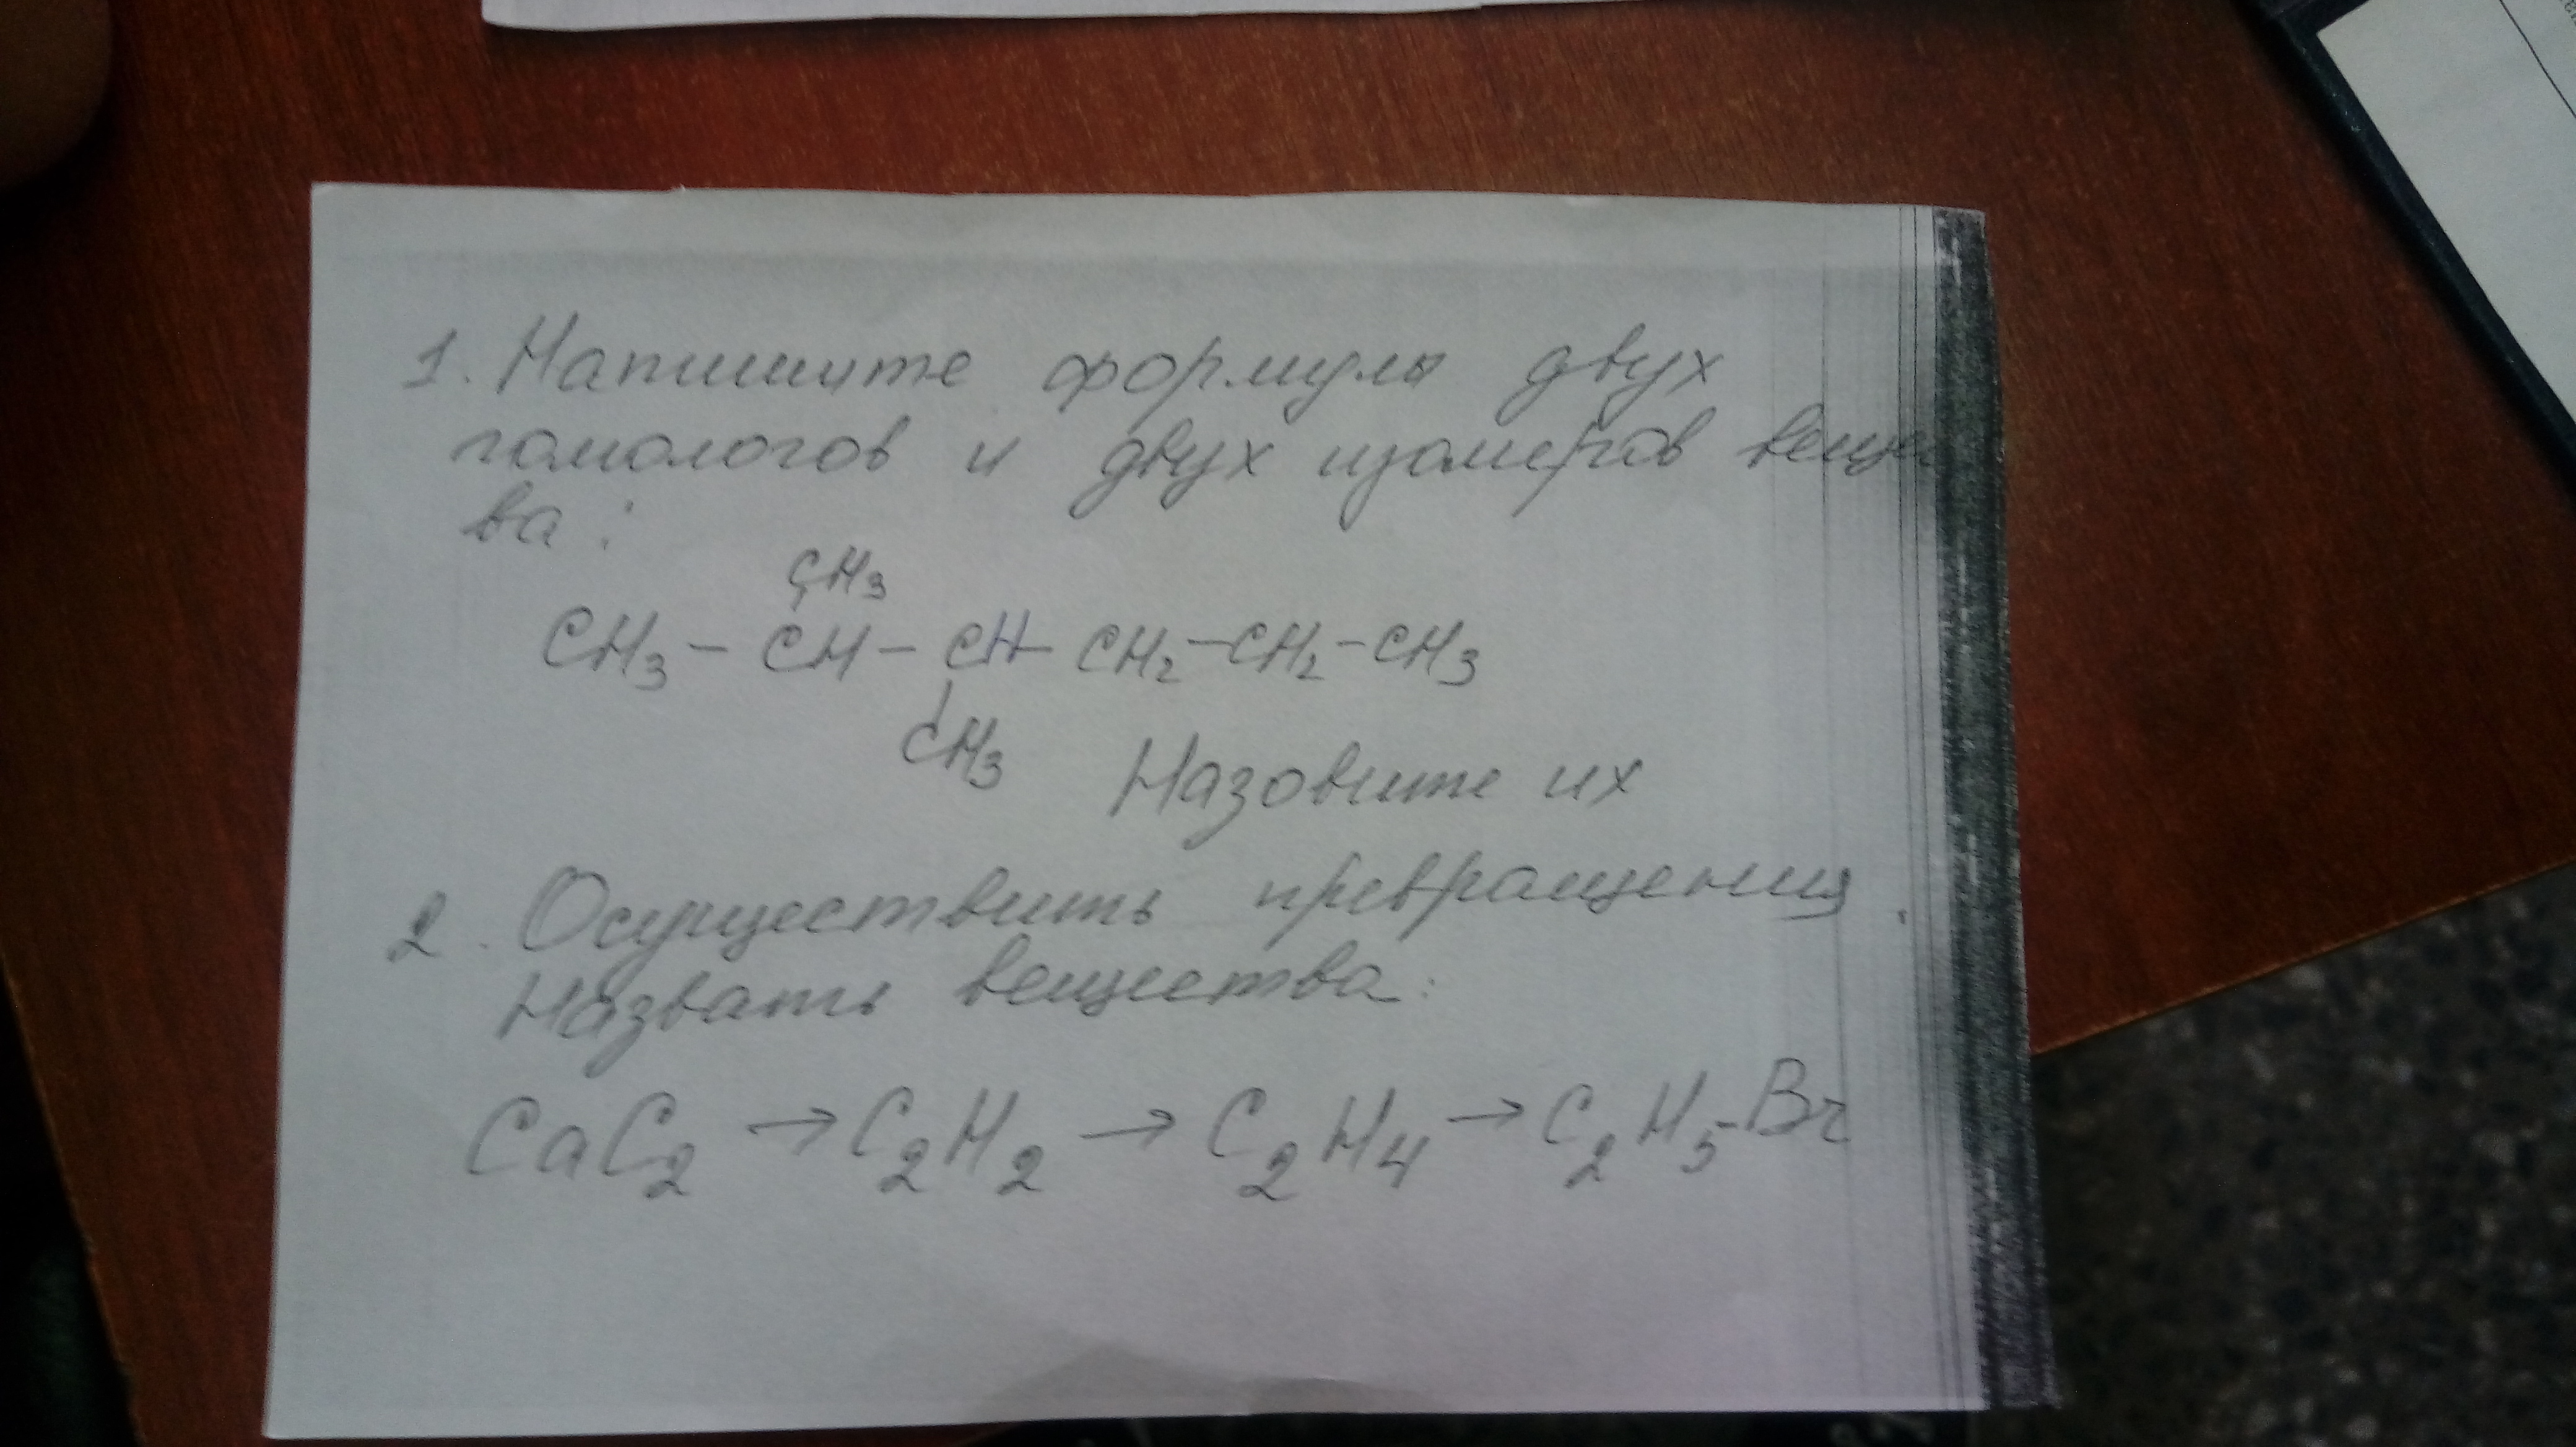 1. Напишите формулы двух
гомологов и двух изомеров вещест
ва:
CH3
CH3 – CH – CH – CH2 – CH2 – CH3
CH3
Назовите их
2. Осуществить превращения.
Назвать вещества:
CaC2 → C2H2 → C2H4 → C2H5Br